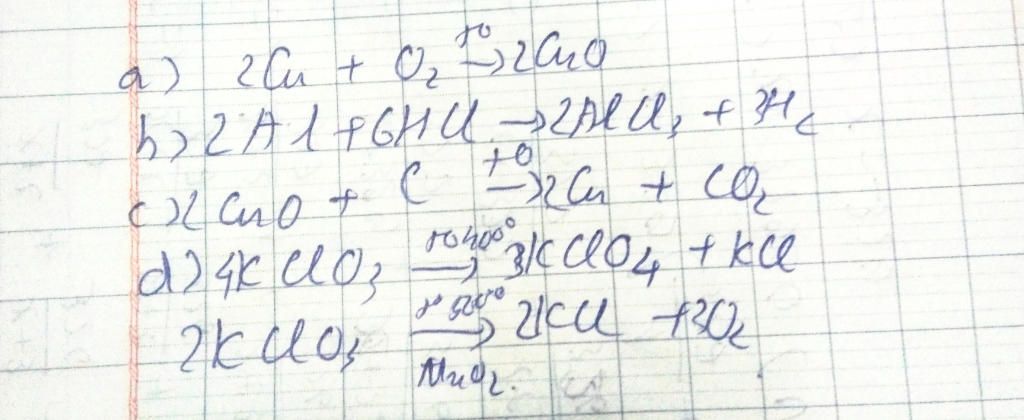 a) 2Cu + O2 t° → 2CuO
b) 2Al + 6HCl → 2AlCl3 + 3H2
c) 2CuO + C t° → 2Cu + CO2
d) 4KClO3 t° 400° → 3KClO4 + KCl
2KClO3 t° 500° → MnO2 2KCl + 3O2